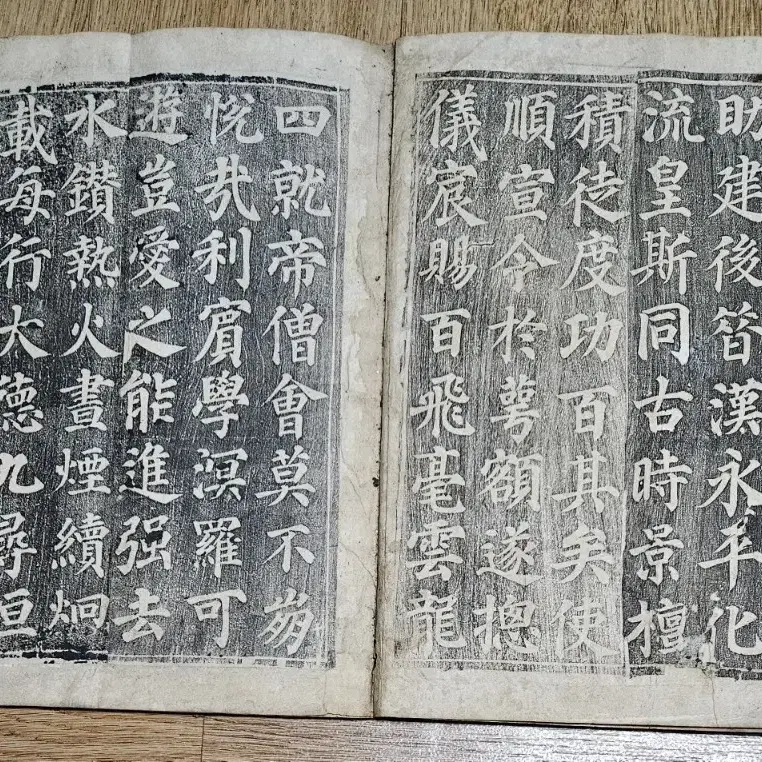 助建後答漢永平化
流皇斯同古時景檀
積徒度功百其矣使
順宣令於萼額遂摠
儀宸賜百飛毫雲龍
四就帝僧會莫不苐
悅哉利賓學溟羅可
遊豈愛之能進强去
水鑚熱火晝煙續炯
載每行大德九尋恒